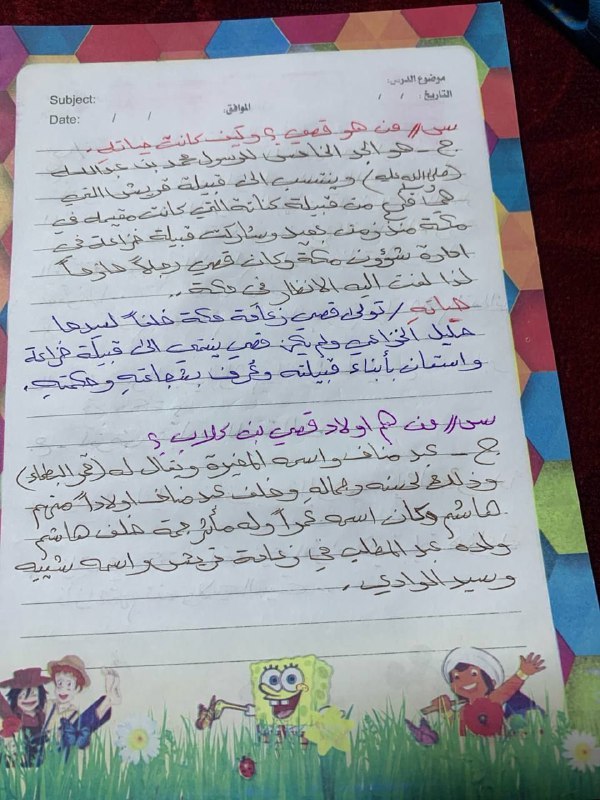 موضوع الدرس:
Subject:
التاريخ: / / الموافق:
Date: / /
س// من هو قصي؟ وكيف كانت حياته.
ج – هو الجد الخامس للرسول محمد بن عبدالله
(صلى الله عليه) وينتسب الى قبيلة قريش التي
هي فرع من قبيلة كنانة التي كانت مقيمه في
مكة منذ زمن بعيد وشاركت قبيلة خزاعة في
ادارة شؤون مكة وكان قصي رجلاً حازماً
لذا لفت اليه الانظار في مكة..
حياته / تولى قصي زعامة مكة خلفاً لسيدها
حليل الخزاعي ولم يكن قصي ينتمي الى قبيلة خزاعة
واستعان بأبناء قبيلته وعُرف بشجاعتهِ وحكمتهِ.
س// من هم اولاد قصي بن كلاب؟
ج – عبد مناف واسمه المغيرة ويقال له (قمر البطحاء)
وذلك لحسنه وجماله وخلف عبد مناف اولاداً منهم
هاشم وكان اسمه عمراً وله مآثر جمة خلف هاشم
ولده عبد المطلب في زعامة قريش واسمه شيبه
وسيد الوادي.